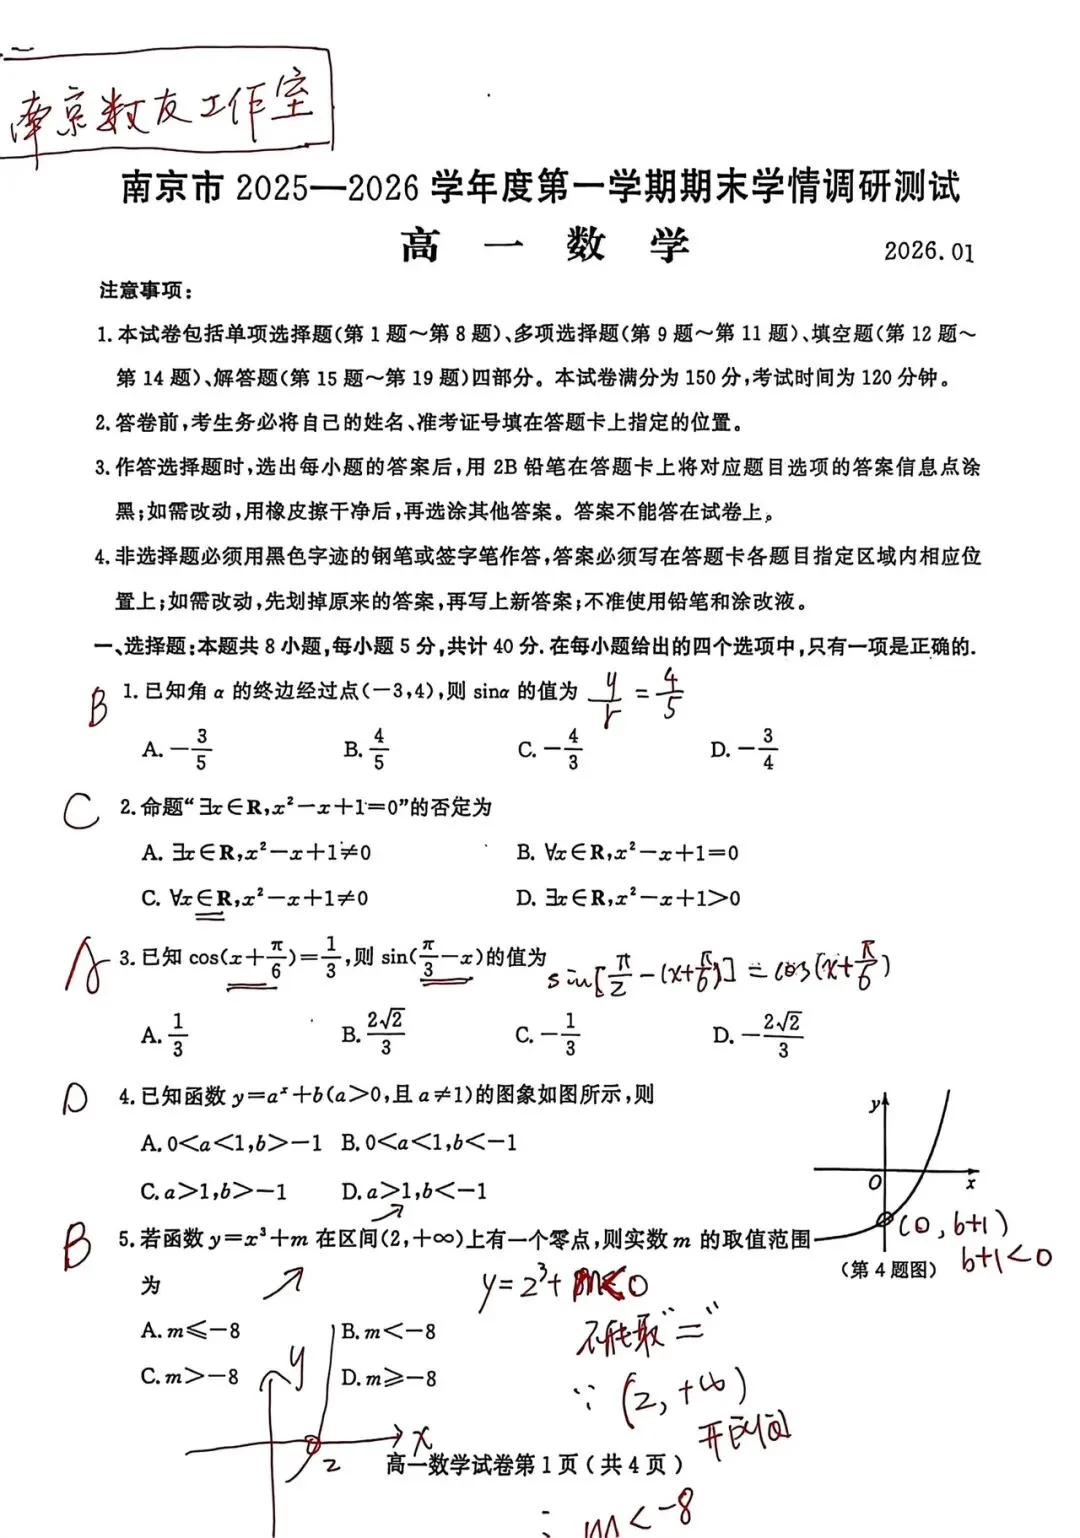 南京数友工作室
南京市 2025—2026 学年度第一学期期末学情调研测试
高 一 数 学 2026.01
注意事项：
1.本试卷包括单项选择题(第 1 题～第 8 题)、多项选择题(第 9 题～第 11 题)、填空题(第 12 题～
第 14 题)、解答题(第 15 题～第 19 题)四部分。本试卷满分为 150 分,考试时间为 120 分钟。
2.答卷前,考生务必将自己的姓名、准考证号填在答题卡上指定的位置。
3.作答选择题时,选出每小题的答案后,用 2B 铅笔在答题卡上将对应题目选项的答案信息点涂
黑;如需改动,用橡皮擦干净后,再选涂其他答案。答案不能答在试卷上。
4.非选择题必须用黑色字迹的钢笔或签字笔作答,答案必须写在答题卡各题目指定区域内相应位
置上;如需改动,先划掉原来的答案,再写上新答案;不准使用铅笔和涂改液。
一、选择题:本题共 8 小题,每小题 5 分,共计 40 分.在每小题给出的四个选项中,只有一项是正确的.
B 1.已知角 α 的终边经过点(−3,4),则 sinα 的值为 y/r = 4/5
A.−3/5 B.4/5 C.−4/3 D.−3/4
C 2.命题“∃x∈R,x²−x+1=0”的否定为
A. ∃x∈R,x²−x+1≠0 B. ∀x∈R,x²−x+1=0
C. ∀x∈R,x²−x+1≠0 D. ∃x∈R,x²−x+1>0
A 3.已知 cos(x+π/6)=1/3,则 sin(π/3−x)的值为 sin[π/2−(x+π/6)]=cos(x+π/6)
A.1/3 B.2√2/3 C.−1/3 D.−2√2/3
D 4.已知函数 y=aˣ+b(a>0,且 a≠1)的图象如图所示,则
A.0<a<1,b>−1 B.0<a<1,b<−1
C.a>1,b>−1 D.a>1,b<−1
y
O x
(0, b+1)
b+1<0
(第 4 题图)
B 5.若函数 y=x³+m 在区间(2,+∞)上有一个零点,则实数 m 的取值范围
为
y=2³+m<0
A.m≤−8 B.m<−8
不能取"="
C.m>−8 D.m≥−8
∵ (2, +∞)
开区间
y
x
2
高一数学试卷第 1 页 ( 共 4 页 )
∴ m<−8